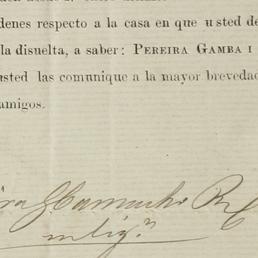 denes respecto a la casa en que usted de
la disuelta, a saber: PEREIRA GAMBA I
usted las comunique a la mayor brevedad
amigos.
ra G. Camacho R